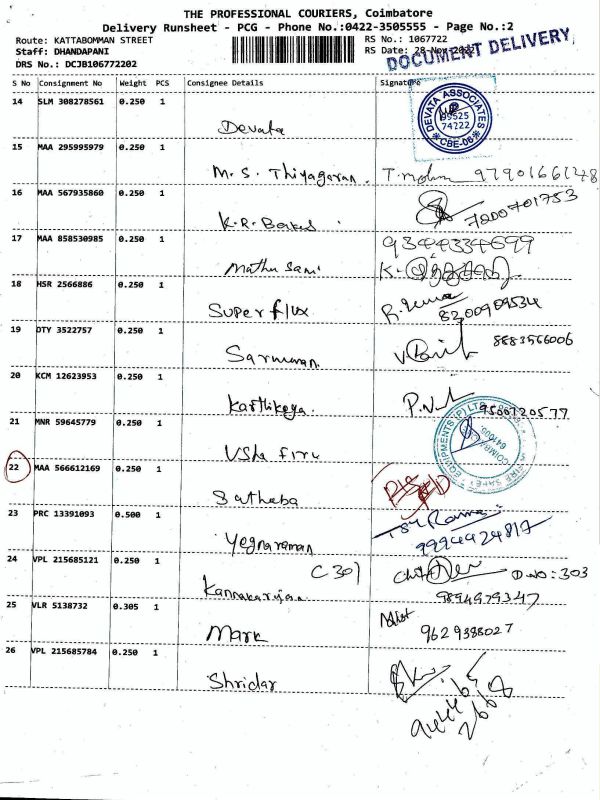 THE PROFESSIONAL COURIERS, Coimbatore
Delivery Runsheet - PCG - Phone No.:0422-3505555 - Page No.:2
Route: KATTABOMMAN STREET RS No.: 1067722
Staff: DHANDAPANI RS Date: 28-Nov-2022
DRS No.: DCJB106772202
DOCUMENT DELIVERY
S No Consignment No Weight PCS Consignee Details Signature
14 SLM 308278561 0.250 1 Devata
DEVATA ASSOCIATES
99525
74222
CBE-06
15 MAA 295995979 0.250 1 M. S. Thiyagaran. T. 97901661248
16 MAA 567935860 0.250 1 K. R. 7200701753
17 MAA 858530985 0.250 1 Mathu Sami 93444334699
K.
18 HSR 2566886 0.250 1 Super flux 8200909534
19 DTY 3522757 0.250 1 8883566006
20 KCM 12623953 0.250 1 Karthikeya. P. 9500720577
21 MNR 59645779 0.250 1 Usha fire
EQUIPMENTS (P) LTD
22 MAA 566612169 0.250 1 Sathaba
23 PRC 13391093 0.500 1 Yegnaraman
9994924817
24 VPL 215685121 0.250 1 C 301 D.NO: 303
9894979347
25 VLR 5138732 0.305 1 Mark
9629388027
26 VPL 215685784 0.250 1 Shridar